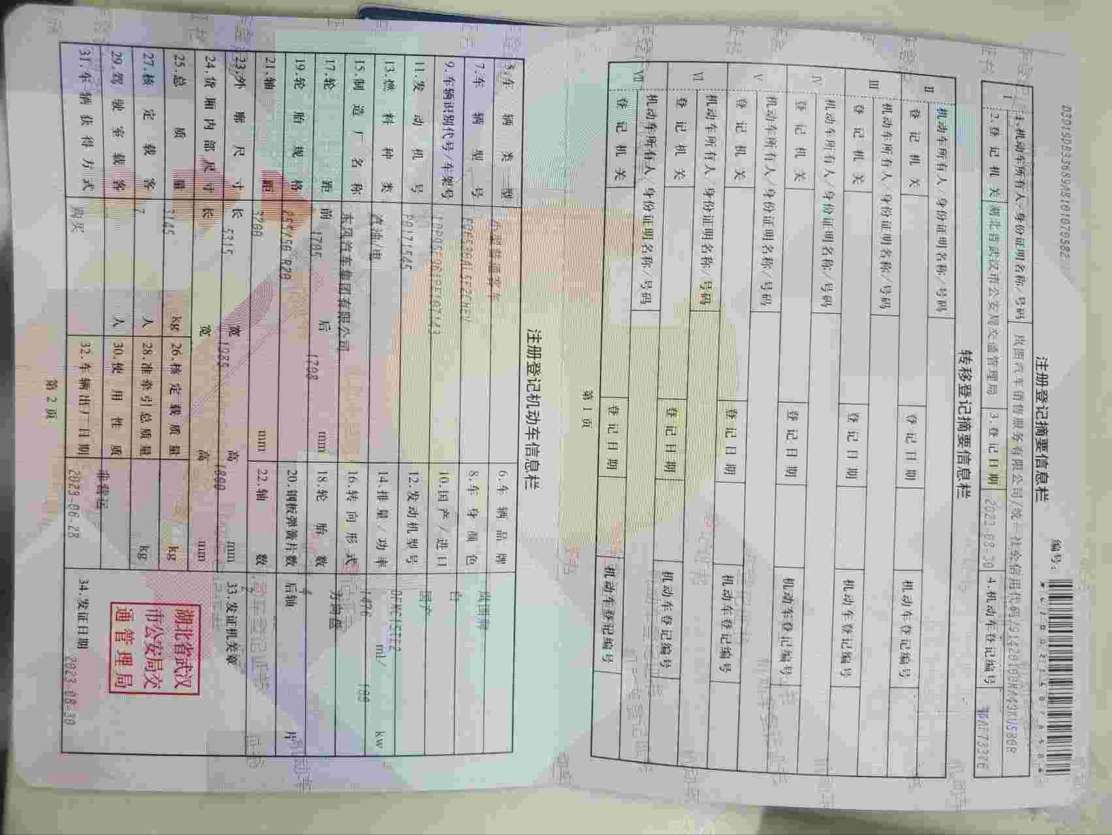 注册登记摘要信息栏
编号:
I
1.机动车所有人/身份证明名称/号码 岚图汽车销售服务有限公司/统一社会信用代码/
2.登记机关 湖北省武汉市公安局交通管理局 3.登记日期 2023-08-30 4.机动车登记编号
转移登记摘要信息栏
II 机动车所有人/身份证明名称/号码
登记机关 登记日期 机动车登记编号
III 机动车所有人/身份证明名称/号码
登记机关 登记日期 机动车登记编号
IV 机动车所有人/身份证明名称/号码
登记机关 登记日期 机动车登记编号
V 机动车所有人/身份证明名称/号码
登记机关 登记日期 机动车登记编号
VI 机动车所有人/身份证明名称/号码
登记机关 登记日期 机动车登记编号
VII 机动车所有人/身份证明名称/号码
登记机关 登记日期 机动车登记编号
第1页
注册登记机动车信息栏
5.车辆类型 小型普通客车 6.车辆品牌 岚图牌
7.车辆型号 8.车身颜色 白
9.车辆识别代号/车架号 10.国产/进口 国产
11.发动机号 12.发动机型号 DFMC15TE2
13.燃料种类 汽油/电 14.排量/功率 1476 ml/ 100 kw
15.制造厂名称 东风汽车集团有限公司 16.转向形式 方向盘
17.轮距 前 1705 后 1708 mm 18.轮胎数 4
19.轮胎规格 255/50 R20 20.钢板弹簧片数 后轴 片
21.轴距 3200 mm 22.轴数 2
23.外廓尺寸 长 5315 宽 1985 高 1800 mm 33.发证机关章
24.货厢内部尺寸 长 宽 高 mm
25.总质量 3145 kg 26.核定载质量 kg
27.核定载客 7 人 28.准牵引总质量 kg
29.驾驶室载客 人 30.使用性质 非营运
31.车辆获得方式 购买 32.车辆出厂日期 2023-06-28 34.发证日期 2023-08-30
湖北省武汉
市公安局交
通管理局
第2页